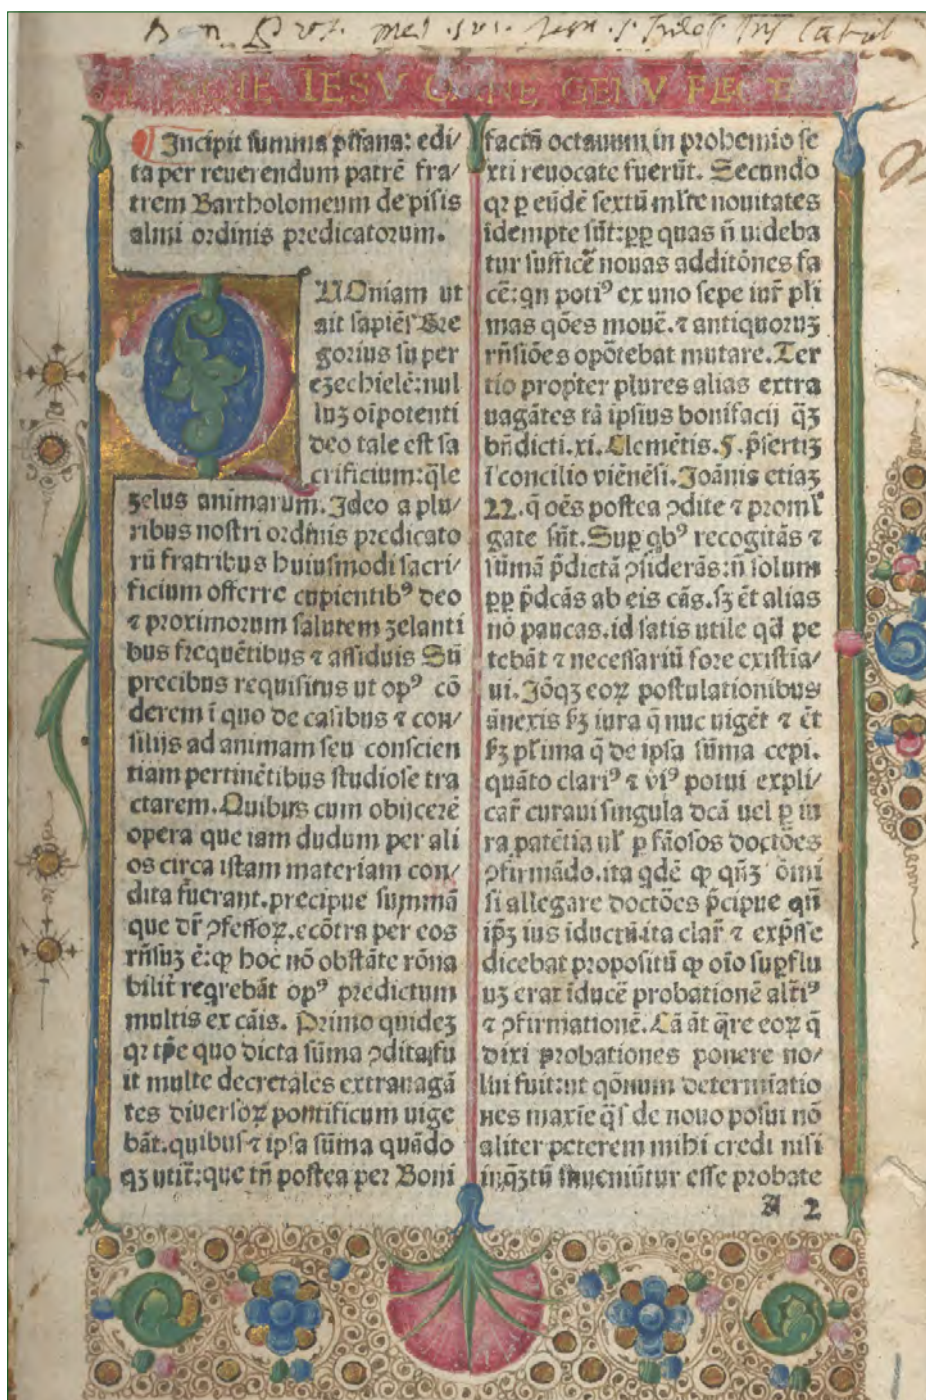 IN NOMINE IESV OMNE GENV FLECTA
Incipit summa pisana: edi/
ta per reuerendum patrẽ fra/
trem Bartholomeum de pisis
almi ordinis predicatorum.
QUOniam ut
ait sapiẽs Gre
gorius super
ezechielẽ: nul
luʒ oĩpotenti
deo tale est sa
crificium: q̃le
zelus animarum. Ideo a plu/
ribus nostri ordinis predicato
rũ fratribus huiusmodi sacri/
ficium offerre cupientibꝰ deo
⁊ proximorum salutem zelanti
bus frequẽtibus ⁊ assiduis Sũ
precibus requisitus ut opꝰ cõ
derem ĩ quo de casibus ⁊ con/
silijs ad animam seu conscien
tiam pertinẽtibus studiose tra
ctarem. Quibus cum obijcerẽ
opera que iam dudum per ali
os circa istam materiam con/
dita fuerant. precipue summã
que dr̃ ꝯfessoꝝ. ecõtra per eos
rñsuʒ ẽ: ꝙ hoc nõ obstãte rõna
bilit̃ reqrebãt opꝰ predictum
multis ex cãis. Primo quideʒ
qꝛ tp̃e quo dicta sũma ꝯdita fu
it multe decretales extrauagã
tes diuersoꝝ pontificum uige
bãt. quibus ⁊ ipsa sũma quãdo
qʒ utit̃: que tñ postea per Boni
faciũ octauum in prohemio se
xti reuocate fuerũt. Secundo
qꝛ ꝑ eũdẽ sextũ ml̃te nouitates
idempte sũt: ꝓp quas ñ uideba
tur sufficẽ nouas additõnes fa
cẽ: qñ potiꝰ ex uno sepe iur̃ pli
mas qões mouẽ. ⁊ antiquoruʒ
rñsiões opõtebat mutare. Ter
tio propter plures alias extra
uagãtes tã ipsius bonifacij q̃ʒ
bñdicti. xi. Clemẽtis. 5. p̃sertiʒ
ĩ concilio viẽnẽsi. Joãnis etiaʒ
22. q̃ oẽs postea ꝯdite ⁊ proml̃
gate sũt. Sup̱ qbꝰ recogitãs ⁊
sũmã p̃dictã ꝯsiderãs: ñ solum
ꝓp p̃dcãs ab eis cãs. sʒ ẽt alias
nõ paucas. id satis utile qđ pe
tebãt ⁊ necessariũ fore existĩa/
ui. Jõqʒ eoꝝ postulationibus
ãnexis ẜʒ iura q̃ nuc uigẽt ⁊ ẽt
ẜʒ pl̃ima q̃ de ipsa sũma cepi.
quãto clariꝰ ⁊ viꝰ potui expli/
car̃ curaui singula dcã uel ꝑ iu
ra patẽtia ul̃ ꝑ fãosos doctões
ꝯfirmãdo. ita qdẽ ꝙ qñʒ õmi
si allegare doctões p̃cipue qñ
ip̃ʒ ius iducrũ. ita clar̃ ⁊ exp̃sse
dicebat propositũ ꝙ oĩo sup̱flu
uʒ erat ĩducẽ probationẽ altĩꝰ
⁊ ꝯfirmationẽ. Cã ãt q̃re eoꝝ q̃
dixi probationes ponere no/
lui fuit: ut qõnum determĩatio
nes maxĩe q̃s de nouo posui nõ
aliter peterem mihi credi nisi
inq̃ʒtũ inueniũtur esse probate
A 2